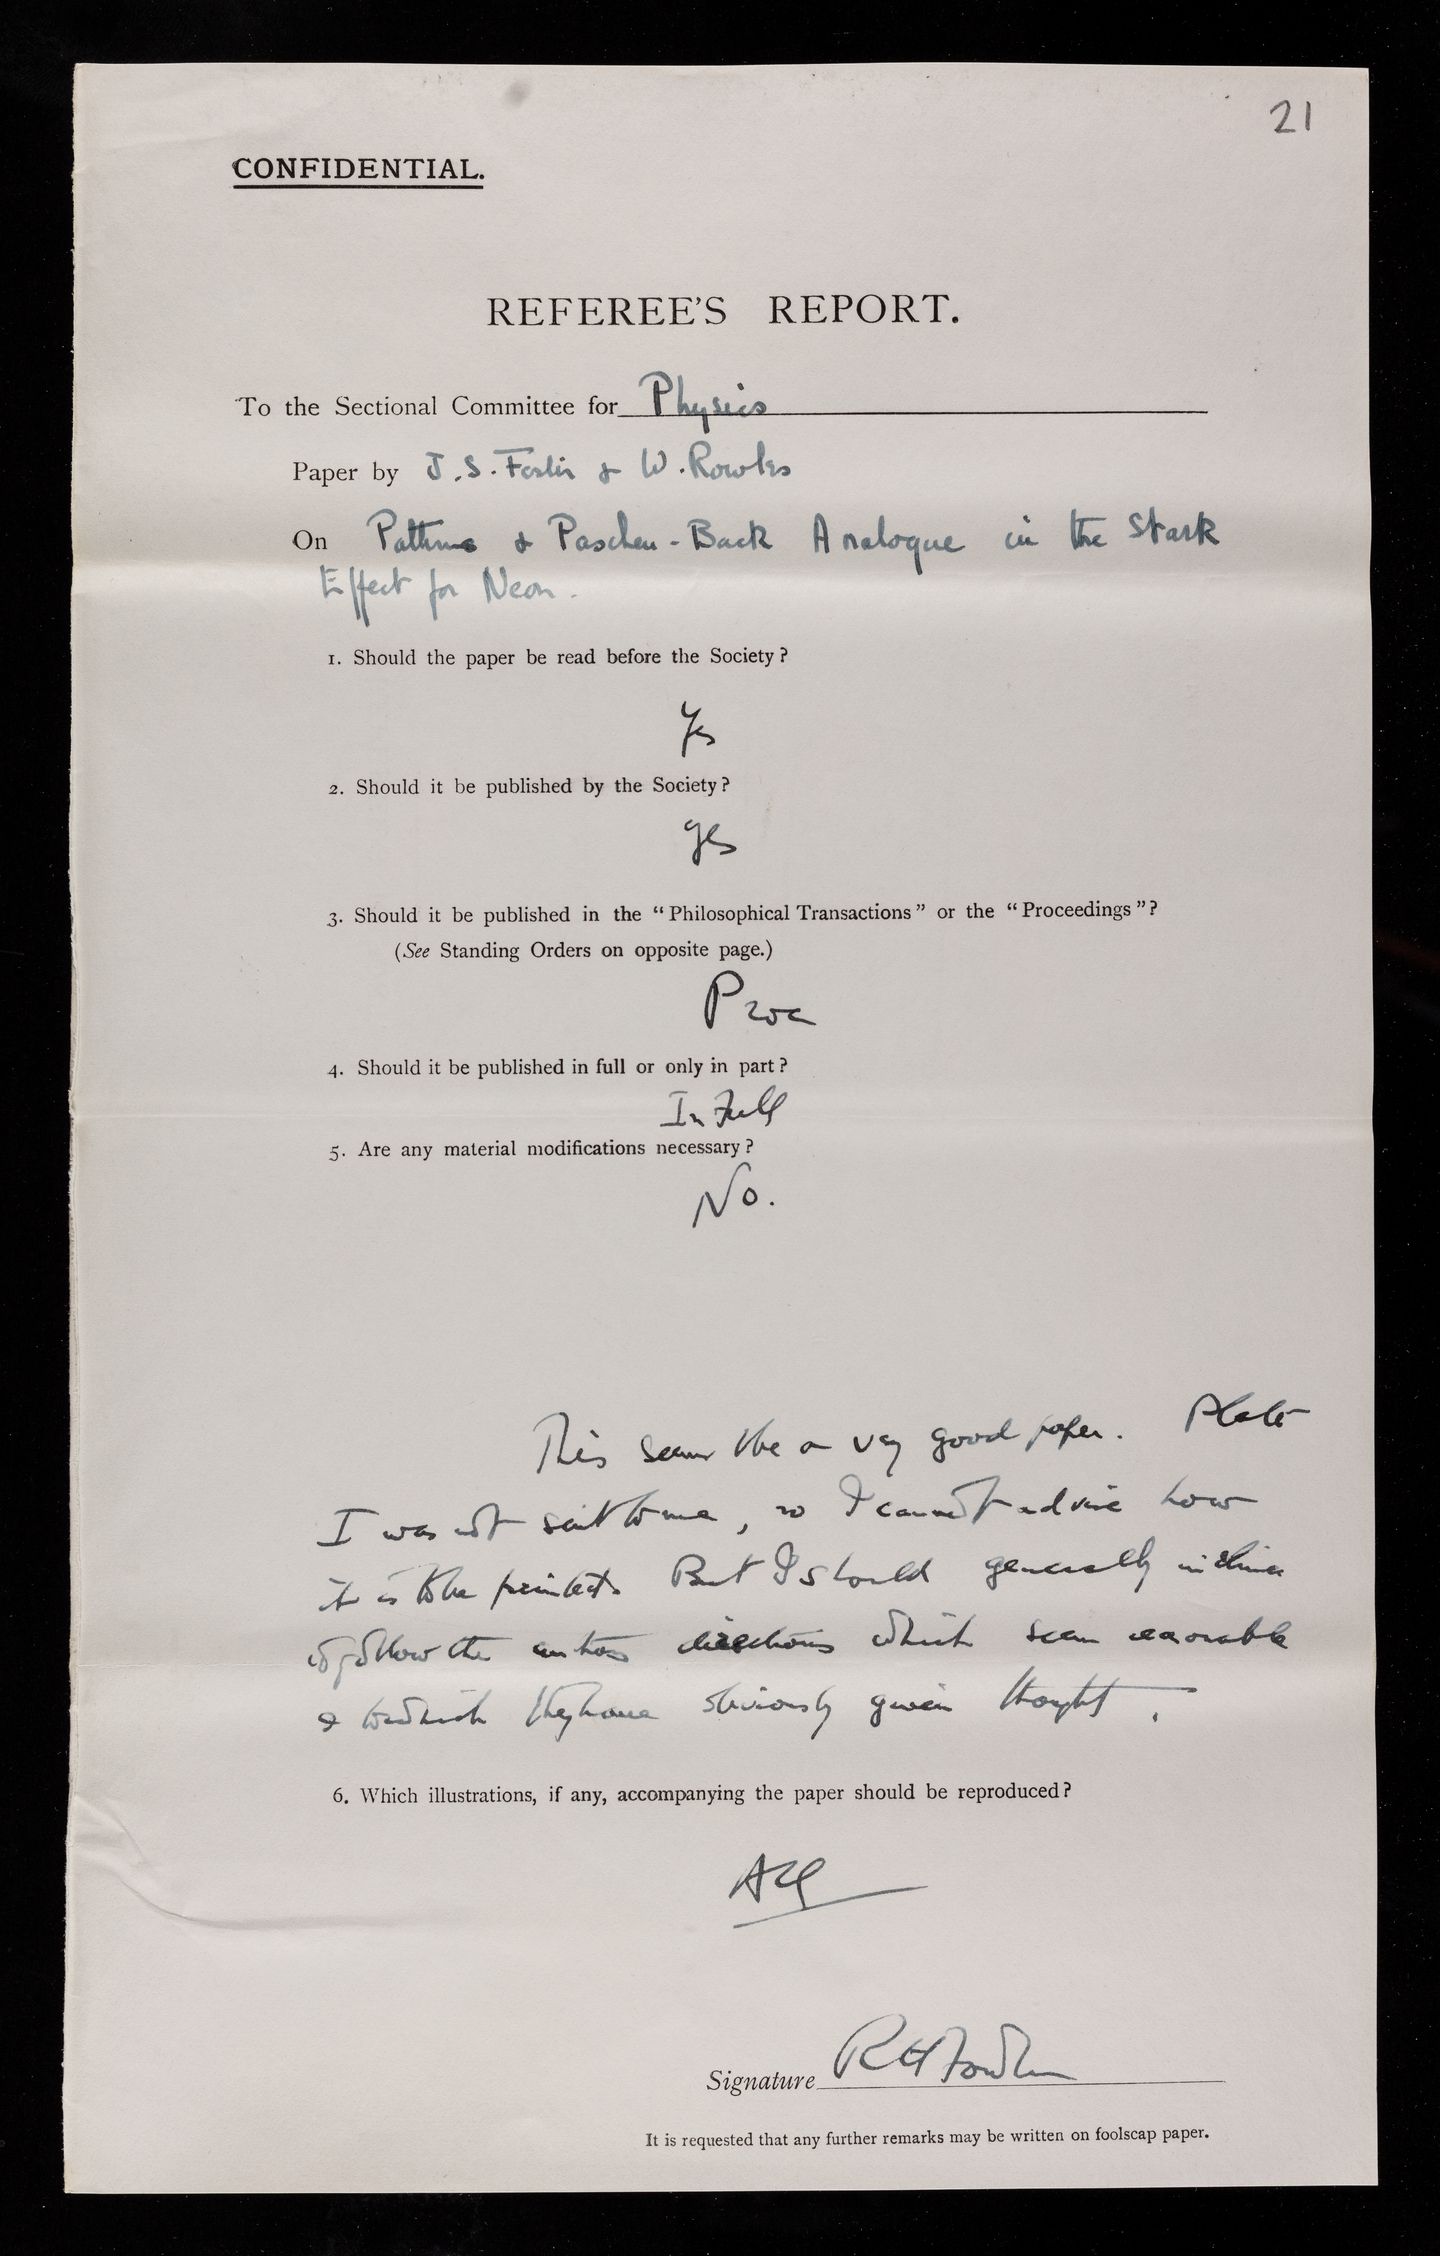 21
CONFIDENTIAL.
REFEREE'S REPORT.
To the Sectional Committee for Physics
Paper by J.S. Foster & W. Rowles
On Patterns & Paschen-Back Analogue in the Stark
Effect for Neon.
1. Should the paper be read before the Society?
Yes
2. Should it be published by the Society?
Yes
3. Should it be published in the "Philosophical Transactions" or the "Proceedings"?
(See Standing Orders on opposite page.)
Proc
4. Should it be published in full or only in part?
In Full
5. Are any material modifications necessary?
No.
This seems to be a very good paper. Plate
I was not sent to me, so I cannot advise how
it is to be printed. But I should generally incline
to follow the authors directions which seem reasonable
& to which they have obviously given thought.
6. Which illustrations, if any, accompanying the paper should be reproduced?
All
Signature RH Fowler
It is requested that any further remarks may be written on foolscap paper.